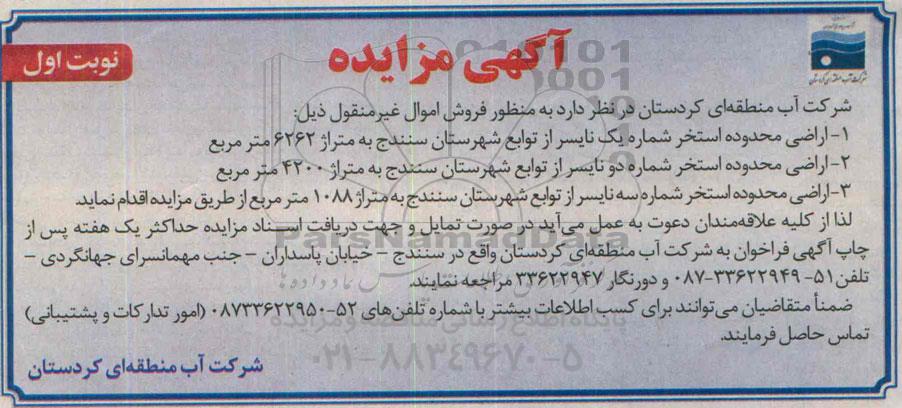 آگهی مزایده
نوبت اول
شرکت آب منطقه‌ای کردستان
شرکت آب منطقه‌ای کردستان در نظر دارد به منظور فروش اموال غیرمنقول ذیل:
۱-اراضی محدوده استخر شماره یک نایسر از توابع شهرستان سنندج به متراژ ۶۲۶۲ متر مربع
۲-اراضی محدوده استخر شماره دو نایسر از توابع شهرستان سنندج به متراژ ۴۲۰۰ متر مربع
۳-اراضی محدوده استخر شماره سه نایسر از توابع شهرستان سنندج به متراژ ۱۰۸۸ متر مربع از طریق مزایده اقدام نماید.
لذا از کلیه علاقه‌مندان دعوت به عمل می‌آید در صورت تمایل و جهت دریافت اسناد مزایده حداکثر یک هفته پس از
چاپ آگهی فراخوان به شرکت آب منطقه‌ای کردستان واقع در سنندج - خیابان پاسداران - جنب مهمانسرای جهانگردی -
تلفن ۵۱- ۳۳۶۲۲۹۴۹-۰۸۷ و دورنگار ۳۳۶۲۲۹۴۷ مراجعه نمایند.
ضمناً متقاضیان می‌توانند برای کسب اطلاعات بیشتر با شماره تلفن‌های ۵۲-۰۸۷۳۳۶۲۲۹۵۰ (امور تدارکات و پشتیبانی)
تماس حاصل فرمایند.
شرکت آب منطقه‌ای کردستان
ParsNamadData
پایگاه اطلاع رسانی مناقصه و مزایده
۰۲۱-۸۸۳۴۹۶۷۰-۵